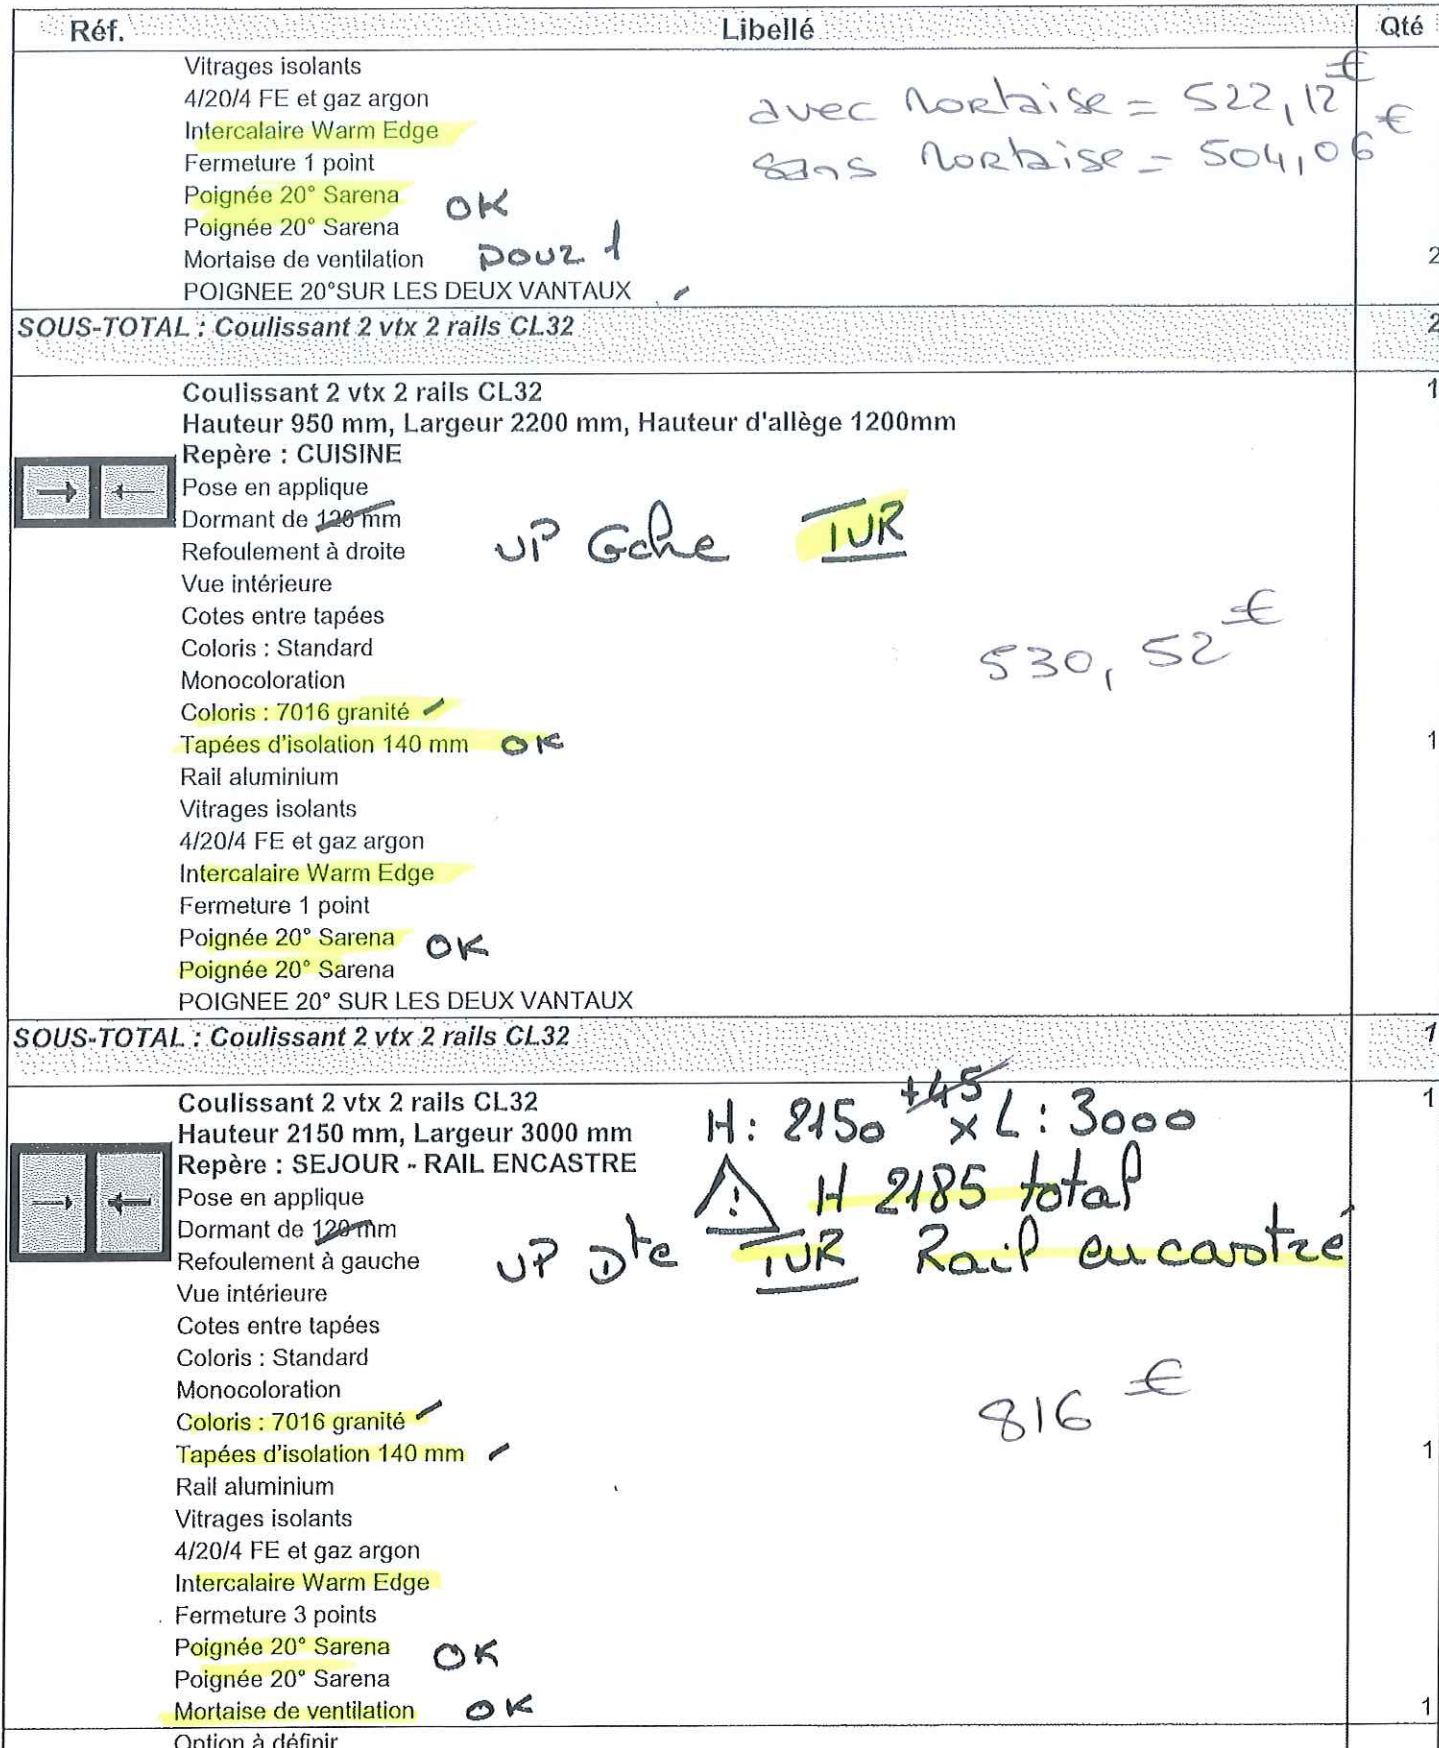 Réf. Libellé Qté
Vitrages isolants
4/20/4 FE et gaz argon
avec Mortaise = 522,12 €
Intercalaire Warm Edge
Fermeture 1 point
sans Mortaise = 504,06 €
Poignée 20° Sarena OK
Poignée 20° Sarena
Mortaise de ventilation pour 1 2
POIGNEE 20°SUR LES DEUX VANTAUX
SOUS-TOTAL : Coulissant 2 vtx 2 rails CL32 2
Coulissant 2 vtx 2 rails CL32 1
Hauteur 950 mm, Largeur 2200 mm, Hauteur d'allège 1200mm
Repère : CUISINE
Pose en applique
Dormant de 120 mm
Refoulement à droite VP Gche TUR
Vue intérieure
Cotes entre tapées
Coloris : Standard
530,52 €
Monocoloration
Coloris : 7016 granité
Tapées d'isolation 140 mm OK 1
Rail aluminium
Vitrages isolants
4/20/4 FE et gaz argon
Intercalaire Warm Edge
Fermeture 1 point
Poignée 20° Sarena OK
Poignée 20° Sarena
POIGNEE 20° SUR LES DEUX VANTAUX
SOUS-TOTAL : Coulissant 2 vtx 2 rails CL32 1
Coulissant 2 vtx 2 rails CL32 1
H: 2150 +45 x L: 3000
Hauteur 2150 mm, Largeur 3000 mm
Repère : SEJOUR - RAIL ENCASTRE
Pose en applique ! H 2185 total
Dormant de 120 mm
Refoulement à gauche VP Dte TUR Rail encastré
Vue intérieure
Cotes entre tapées
Coloris : Standard
Monocoloration
816 €
Coloris : 7016 granité
Tapées d'isolation 140 mm 1
Rail aluminium
Vitrages isolants
4/20/4 FE et gaz argon
Intercalaire Warm Edge
Fermeture 3 points
Poignée 20° Sarena OK
Poignée 20° Sarena
Mortaise de ventilation OK 1
Option à définir